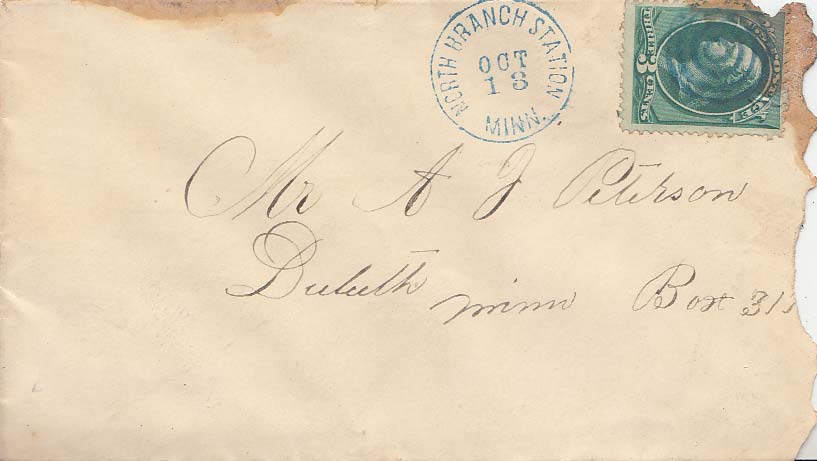 NORTH BRANCH STATION
OCT
13
MINN.
3
THREE CENTS
Mr A J Peterson
Duluth Minn Box 311